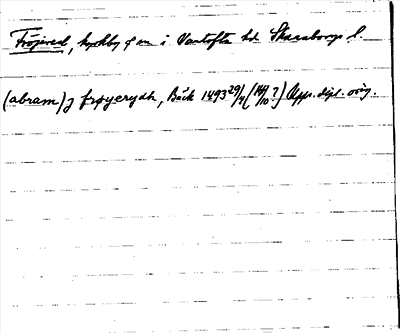 Fröjered, kyrkby o sn i Vartofta hd Skaraborgs l.
(abram) j frøyerydh, Bäck 1493 29/4 (14/10?) Upps. dipl. orig.